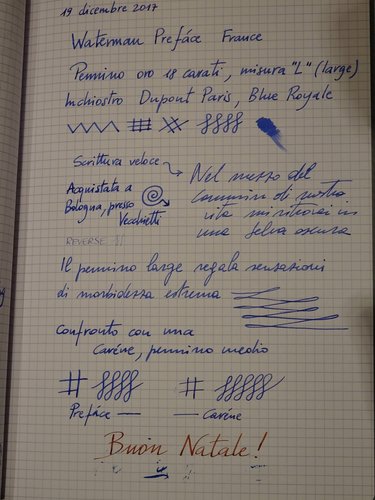 19 dicembre 2017
Waterman Preface France
Pennino oro 18 carati, misura "L" (large)
Inchiostro Dupont Paris, Blue Royale
Scrittura veloce
Nel mezzo del
cammin di nostra
vita mi ritrovai in
una selva oscura
Acquistata a
Bologna, presso
Vecchietti
REVERSE
Il pennino large regala sensazioni
di morbidezza estrema
Confronto con una
Carène, pennino medio
Preface — — Carène
Buon Natale!